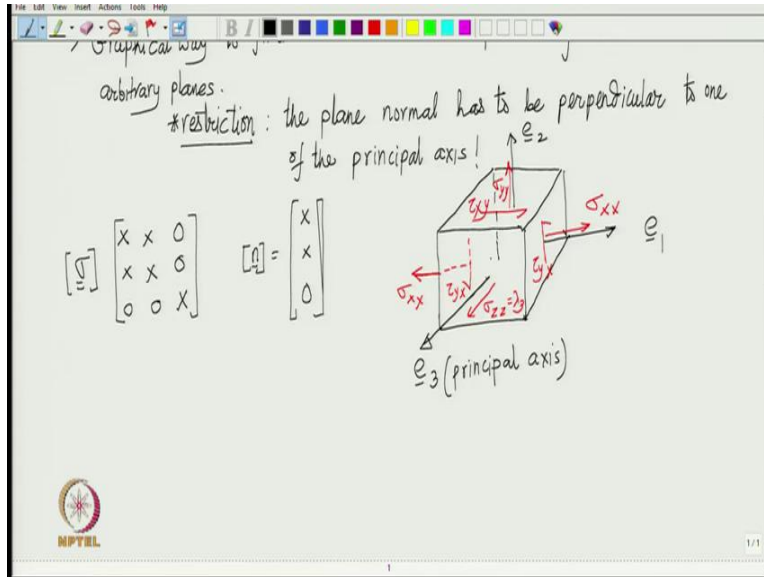 File Edit View Insert Actions Tools Help
B I
Graphical way to
arbitrary planes.
*restriction: the plane normal has to be perpendicular to one
of the principal axis!
e2
σyy
τxy
σxx
e1
[σ] [x x 0
x x 0
0 0 x]
[n] = [x
x
0]
τyx
σxx
τyx
σzz=λ3
e3 (principal axis)
NPTEL
1/1
1